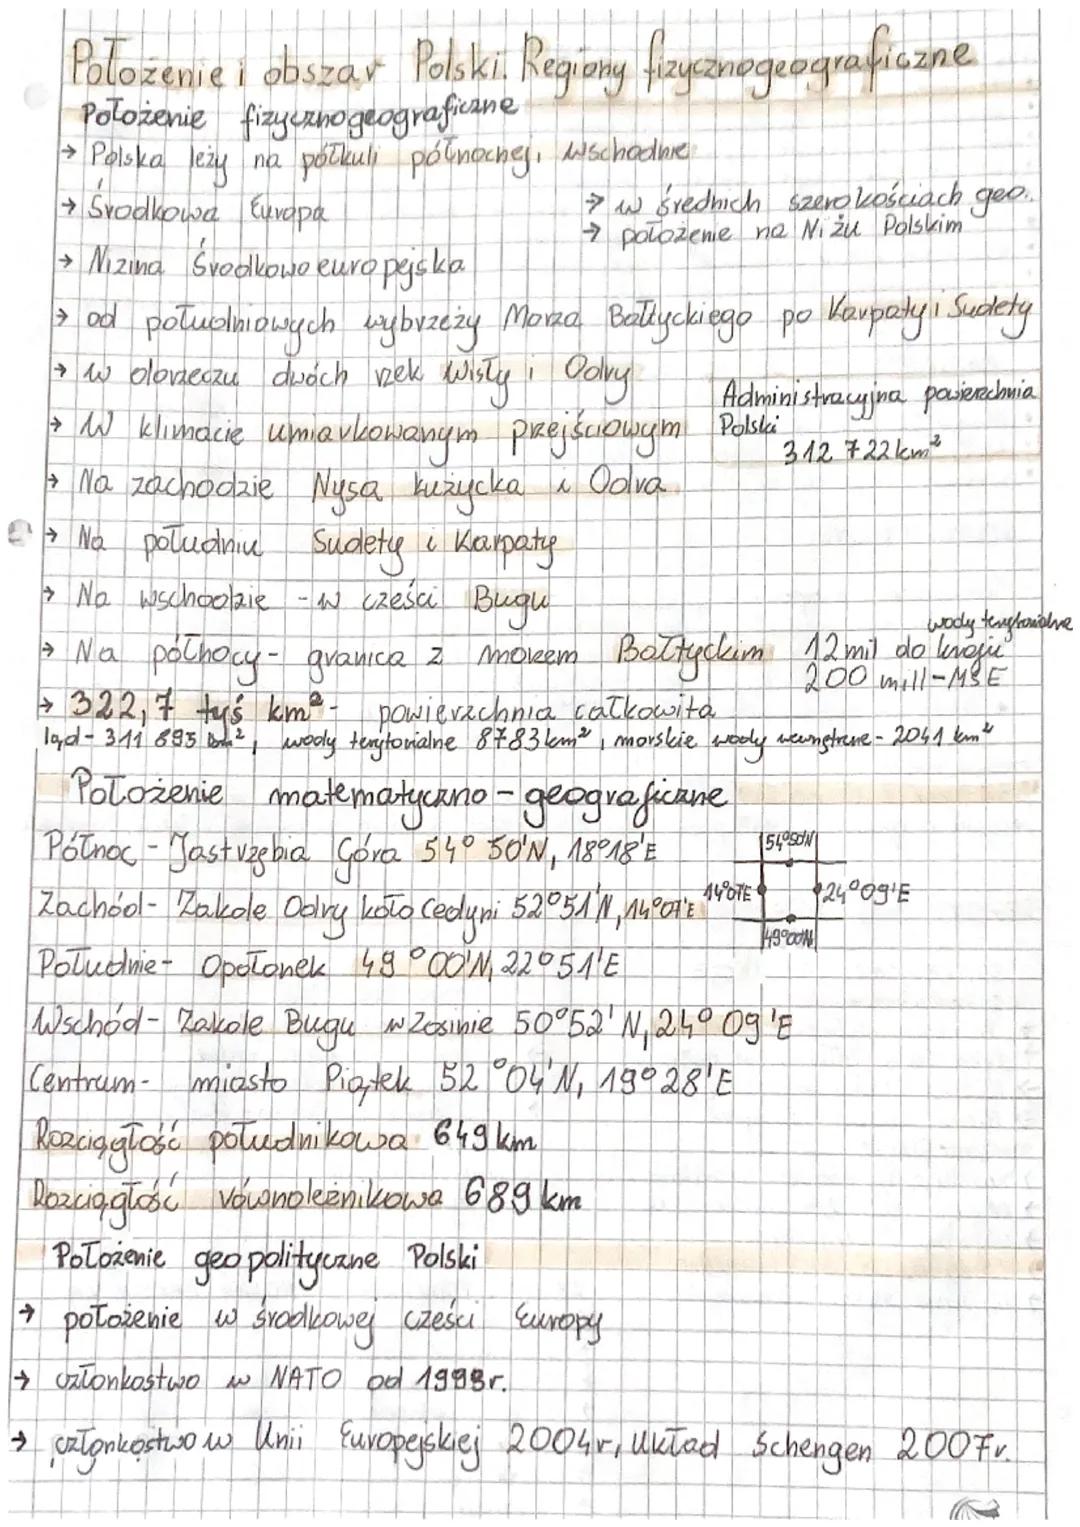 Położenie i obszar Polski. Regiony fizycznogeograficzne
Położenie fizycznogeograficzne
→ Polska leży na półkuli północnej, wschodnie
→ Środkowa Europa
→ w średnich szerokościach geo.
→ położenie na Niżu Polskim
→ Nizina Środkowoeuropejska
→ od południowych wybrzeży Morza Bałtyckiego po Karpaty i Sudety
→ w dorzeczu dwóch rzek Wisły i Odry
→ W klimacie umiarkowanym przejściowym
Administracyjna powierzchnia
Polski
312 722 km²
→ Na zachodzie Nysa Łużycka i Odra
→ Na południu Sudety i Karpaty
→ Na wschodzie - w części Bugu
→ Na północy - granica z morzem Bałtyckim
wody terytorialne
12 mil do kraju
200 mill - MSE
→ 322,7 tyś km² - powierzchnia całkowita
ląd - 311 895 km², wody terytorialne 8783 km², morskie wody wewnętrzne - 2041 km²
Położenie matematyczno - geograficzne
Północ - Jastrzębia Góra 54° 50'N, 18°18'E
Zachód - Zakole Odry koło Cedyni 52°51'N, 14°07'E
54°50'N
14°07'E
24°09'E
49°00'N
Południe - Opołonek 49°00'N, 22°51'E
Wschód - Zakole Bugu w Zosinie 50°52'N, 24°09'E
Centrum - miasto Piątek 52°04'N, 19°28'E
Rozciągłość południkowa 649 km
Rozciągłość równoleżnikowa 689 km
Położenie geopolityczne Polski
→ położenie w środkowej części Europy
→ członkostwo w NATO od 1999r.
→ członkostwo w Unii Europejskiej 2004r, Układ Schengen 2007r.